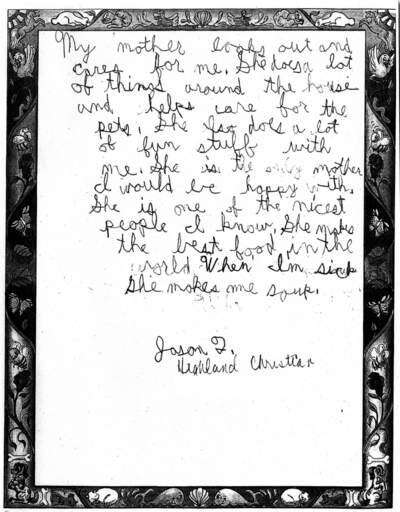 My mother looks out and
cares for me. She does a lot
of things around the house
and helps care for the
pets. She lso does a lot
of fun stuff with
me. She is the only mother
I would be happy with.
She is one of the nicest
people I know. She makes
the best food in the
world When I'm sick
she makes me soup.
Jason F.
Highland Christian